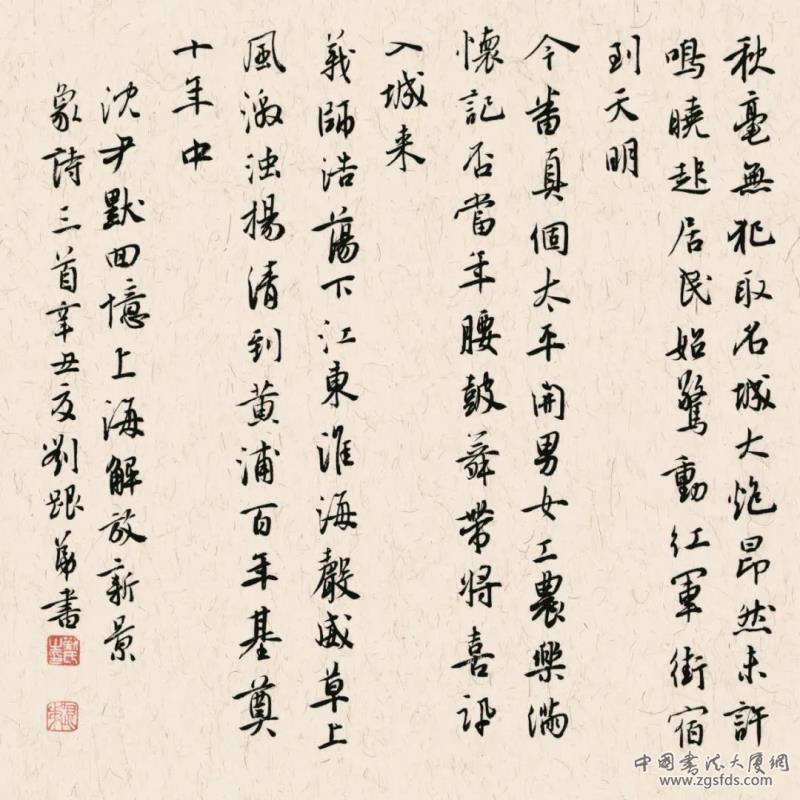 秋毫無犯取名城大炮昂然未許
鳴曉起居民始驚動紅軍街宿
到天明
今番真個太平開男女工農樂滿
懷記否當年腰鼓舞帶將喜訊
入城来
義師浩蕩下江東淮海聲威草上
風激浊揚清到黄浦百年基奠
十年中
沈尹默回憶上海解放新景
象詩三首辛丑夏劉跟弟書
中國書法大厦網
www.zgsfds.com